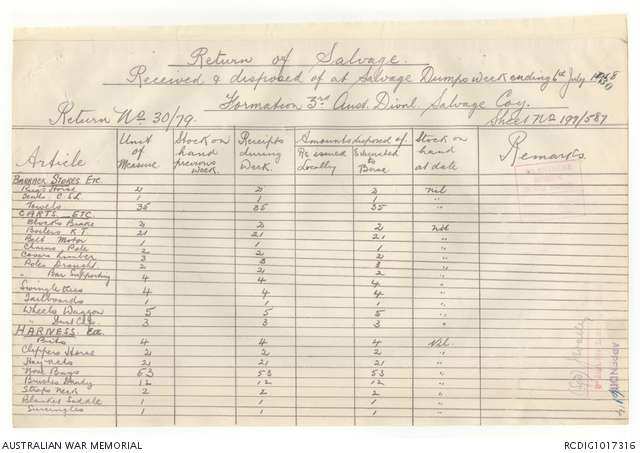 Return of Salvage.
Received & disposed of at Salvage Dumps week ending 6th July
Formation 3rd Aust. Divnl. Salvage Coy.
Return No 30/79. Sheet No 199/587
Article Unit of Measure Stock on hand previous Week. Receipts during Week. Amounts disposed of Re issued Locally Evacuated to Base Stock on hand at date Remarks.
BARRACK STORES. ETC.
Rugs Horse 2 2 2 Nil
1 1 1 "
Towels 35 35 35 "
CARTS. ETC
Blocks Brake 2 2 2 Nil
Boilers K.T. 21 21 21 "
Motor 1 1 1 "
Chains Pole 2 1
Covers Limber 3 3 3 "
Poles Draught 2 3 3 "
" Bar Supporting 2 2 "
4 4 4 "
Swingle Trees 4 4 4 "
Tailboards 1 1 1 "
Wheels Waggon 5 5 5 "
" 3 3 3 "
HARNESS. Etc.
Bits 4 4 4 Nil
Clippers Horse 2 2 2 "
Hay nets 21 21 21 "
Nose Bags 53 53 53 "
Brushes Dandy 12 12 12 "
Straps Neck 2 2 2 "
Blanket Saddle 1 1 1 "
Surcingles 1 1 1 "
APPENDIX
AUSTRALIAN WAR MEMORIAL RCDIG1017316